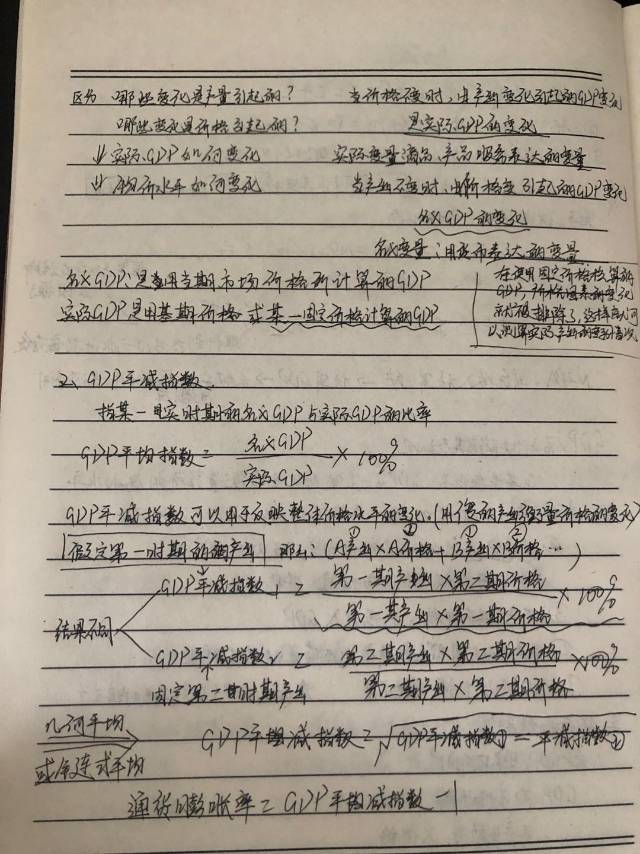 区分 哪些变化是产量引起的? 当价格不变时,由产出变化引起的GDP变化
哪些变化是价格引起的? 是实际GDP的变化
↓ 实际GDP如何变化 实际变量:商品、产品服务表达的变量
↓ 价格水平如何变化 当产出不变时,由价格变引起的GDP变化
名义GDP的变化
名义变量:用货币表达的变量
名义GDP:是用当期市场价格所计算的GDP
实际GDP是用基期价格或某一固定价格计算的GDP
在使用固定价格核算的
GDP,价格因素的变化
就被排除了,这样就可
以测算实际产出的变动情况
2、GDP平减指数.
指某一时期的名义GDP与实际GDP的比率
GDP平均指数 = 名义GDP / 实际GDP × 100%
GDP平减指数可以用于反映整体价格水平的变化.(用 的产出衡量价格的意义)
假定第一时期的产出 那么:(A产出①×A价格②+B产出①×B价格②…)
结果不同
GDP平减指数1 = 第一期产出×第二期价格 / 第一期产出×第一期价格 × 100%
GDP平减指数2 = 第二期产出×第二期价格 / 第二期产出×第二期价格 ×100%
固定第二时期产出
几何平均
或者连式平均
GDP平均减指数=√GDP平减指数①=平减指数②
通货膨胀率=GDP平均减指数-1